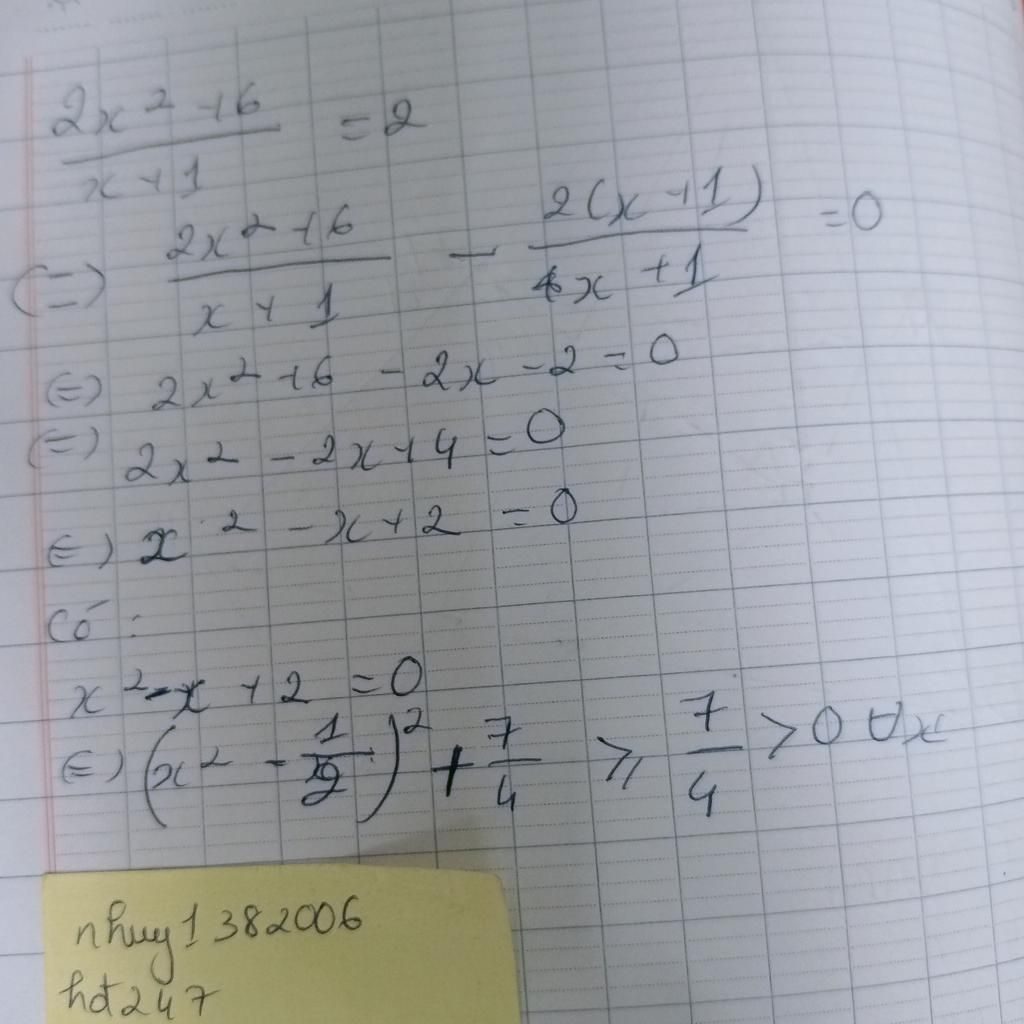 2x² + 6 / x + 1 = 2
(=) 2x² + 6 / x + 1 - 2(x + 1) / x + 1 = 0
(=) 2x² + 6 - 2x - 2 = 0
(=) 2x² - 2x + 4 = 0
(=) x² - x + 2 = 0
Có :
x² - x + 2 = 0
(=) (x² - 1/2)² + 7/4 ⩾ 7/4 > 0 ∀x
nhuy1382006
hdt247